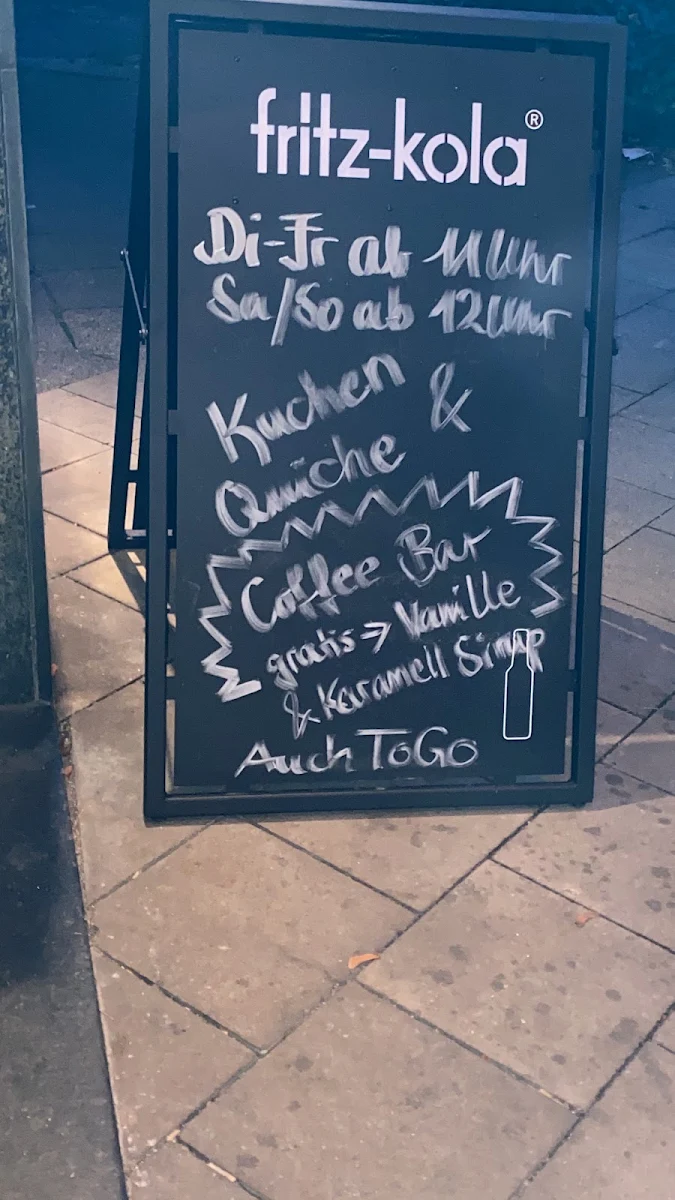 fritz-kola®
Di-Fr ab 11 Uhr
Sa/So ab 12 Uhr
Kuchen &
Quiche
Coffee Bar
gratis → Vanille
& Karamell Sirup
Auch ToGo